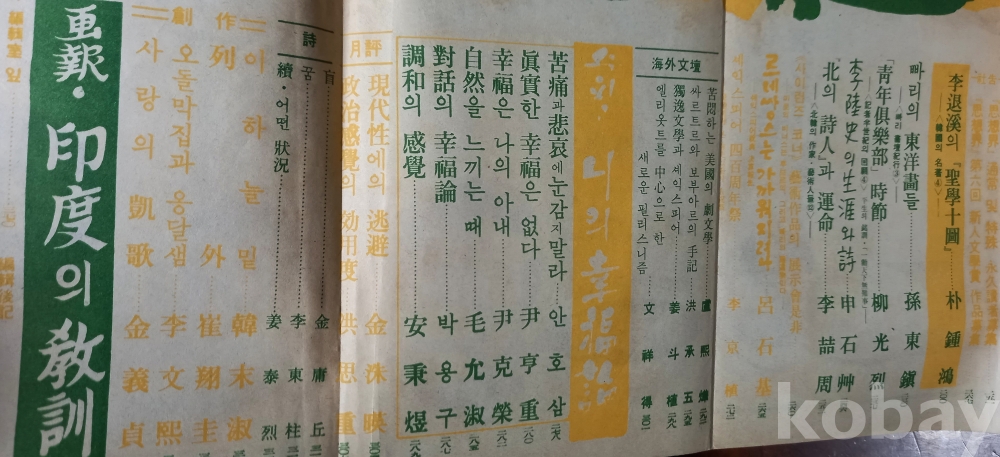 李退溪의 『聖學十圖』 朴鍾鴻
<韓國의 名著④>
빠리의 東洋畫들 孫東鎭
<빠리 畫壇紀行③>
「靑年俱樂部」 時節 柳光烈
李陸史의 生涯와 詩 申石艸
「北의 詩人」과 運命 李喆周
<北韓의 作家·藝術人들⑪>
르네쌍스는 가까워지는가 呂石基
셰익스피어 四百周年祭 李京植
海外文壇
苦悶하는 美國의 劇文學 盧熙燁
싸르트르와 보부아르의 手記 洪承五
獨逸文學과 셰익스피어 姜斗植
엘리옷트를 中心으로 한 새로운 필리스니즘 文祥得
수필·나의 幸福論
苦痛과 悲哀에 눈감지 말라 안호삼
眞實한 幸福은 없다 尹亨重
幸福은 나의 아내 尹克榮
自然을 느끼는 때 毛允淑
對話의 幸福論 박용구
調和의 感覺 安秉煜
月評
現代性에의 逃避 金洙暎
政治感覺의 効用度 洪思重
詩
盲 金庸丘
꿈 李東柱
續·어떤 狀況 姜泰烈
創作
이 하늘 밑 韓末淑
列外 崔翔圭
오돌막집과 옹달샘 李文熙
사랑의 凱歌 金義貞
画報·印度의 教訓
編輯室 일
編輯後記
kobay